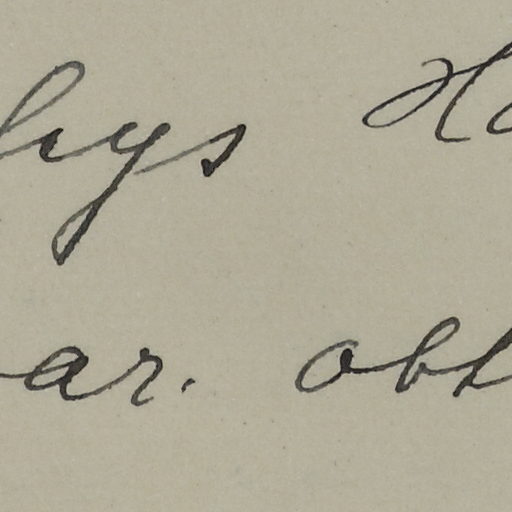 hys H
ar. obl